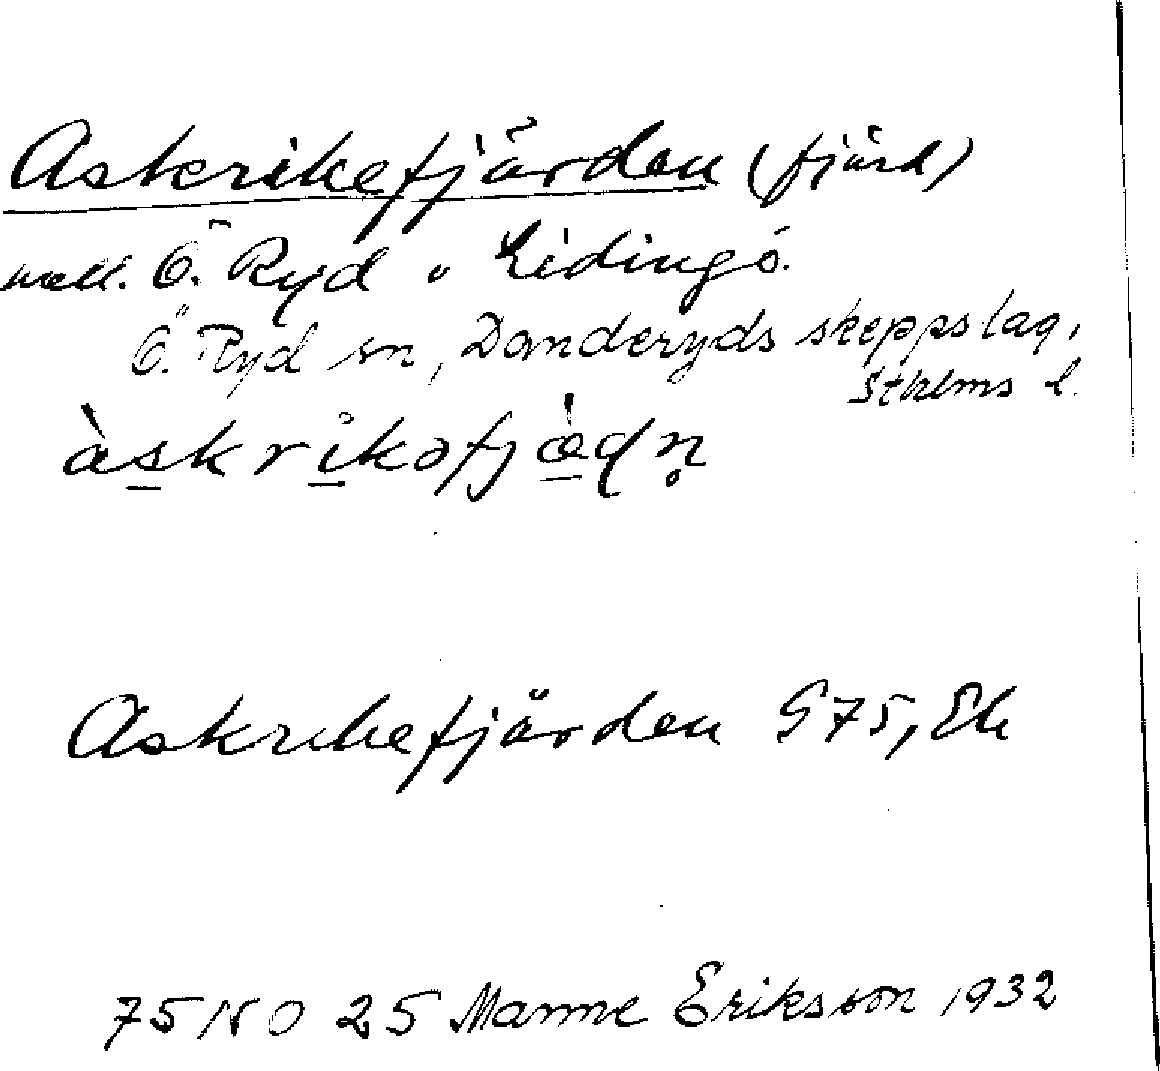 Askrikefjärden (fjärd)
mell. Ö. Ryd o Lidingö.
Ö. Ryd sn, Danderyds skeppslag,
Stklms l.
àskrikəfjæ̀ḍn̥
Askrikefjärden G75, Ek
75 NO 25 Manne Eriksson 1932